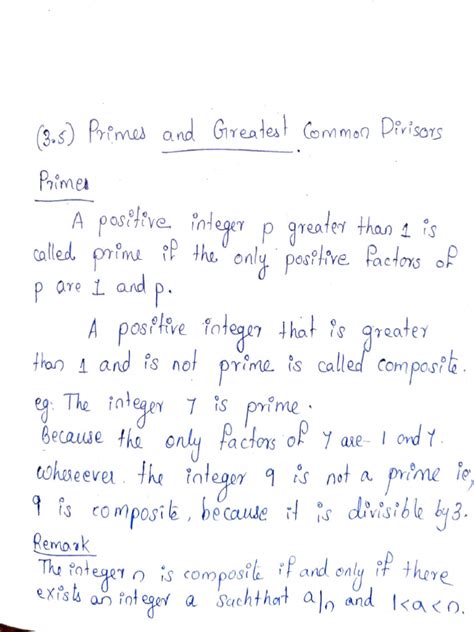 (3.5) Primes and Greatest Common Divisors
Primes
A positive integer p greater than 1 is
called prime if the only positive factors of
p are 1 and p.
A positive integer that is greater
than 1 and is not prime is called composite.
eg: The integer 7 is prime.
Because the only factors of 7 are 1 and 7.
whereever the integer 9 is not a prime ie,
9 is composite, because it is divisible by 3.
Remark
The integer n is composite if and only if there
exists an integer a such that a|n and 1<a<n.